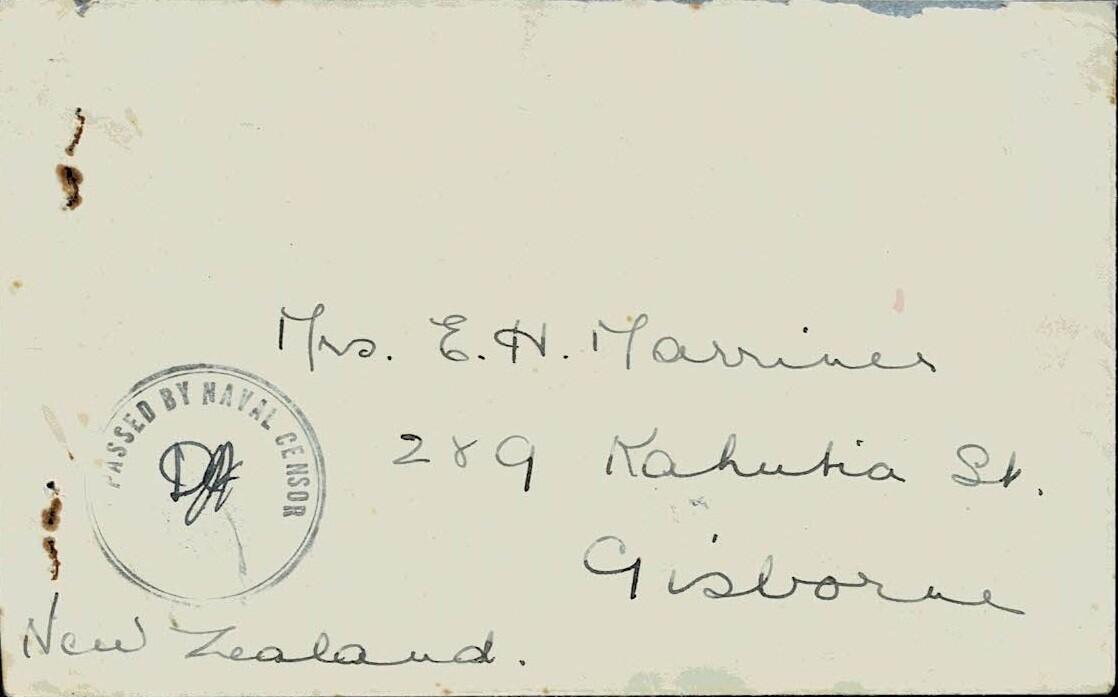 Mrs. E. H. Marriner
PASSED BY NAVAL CENSOR
289 Kahutia St.
Gisborne
New Zealand.